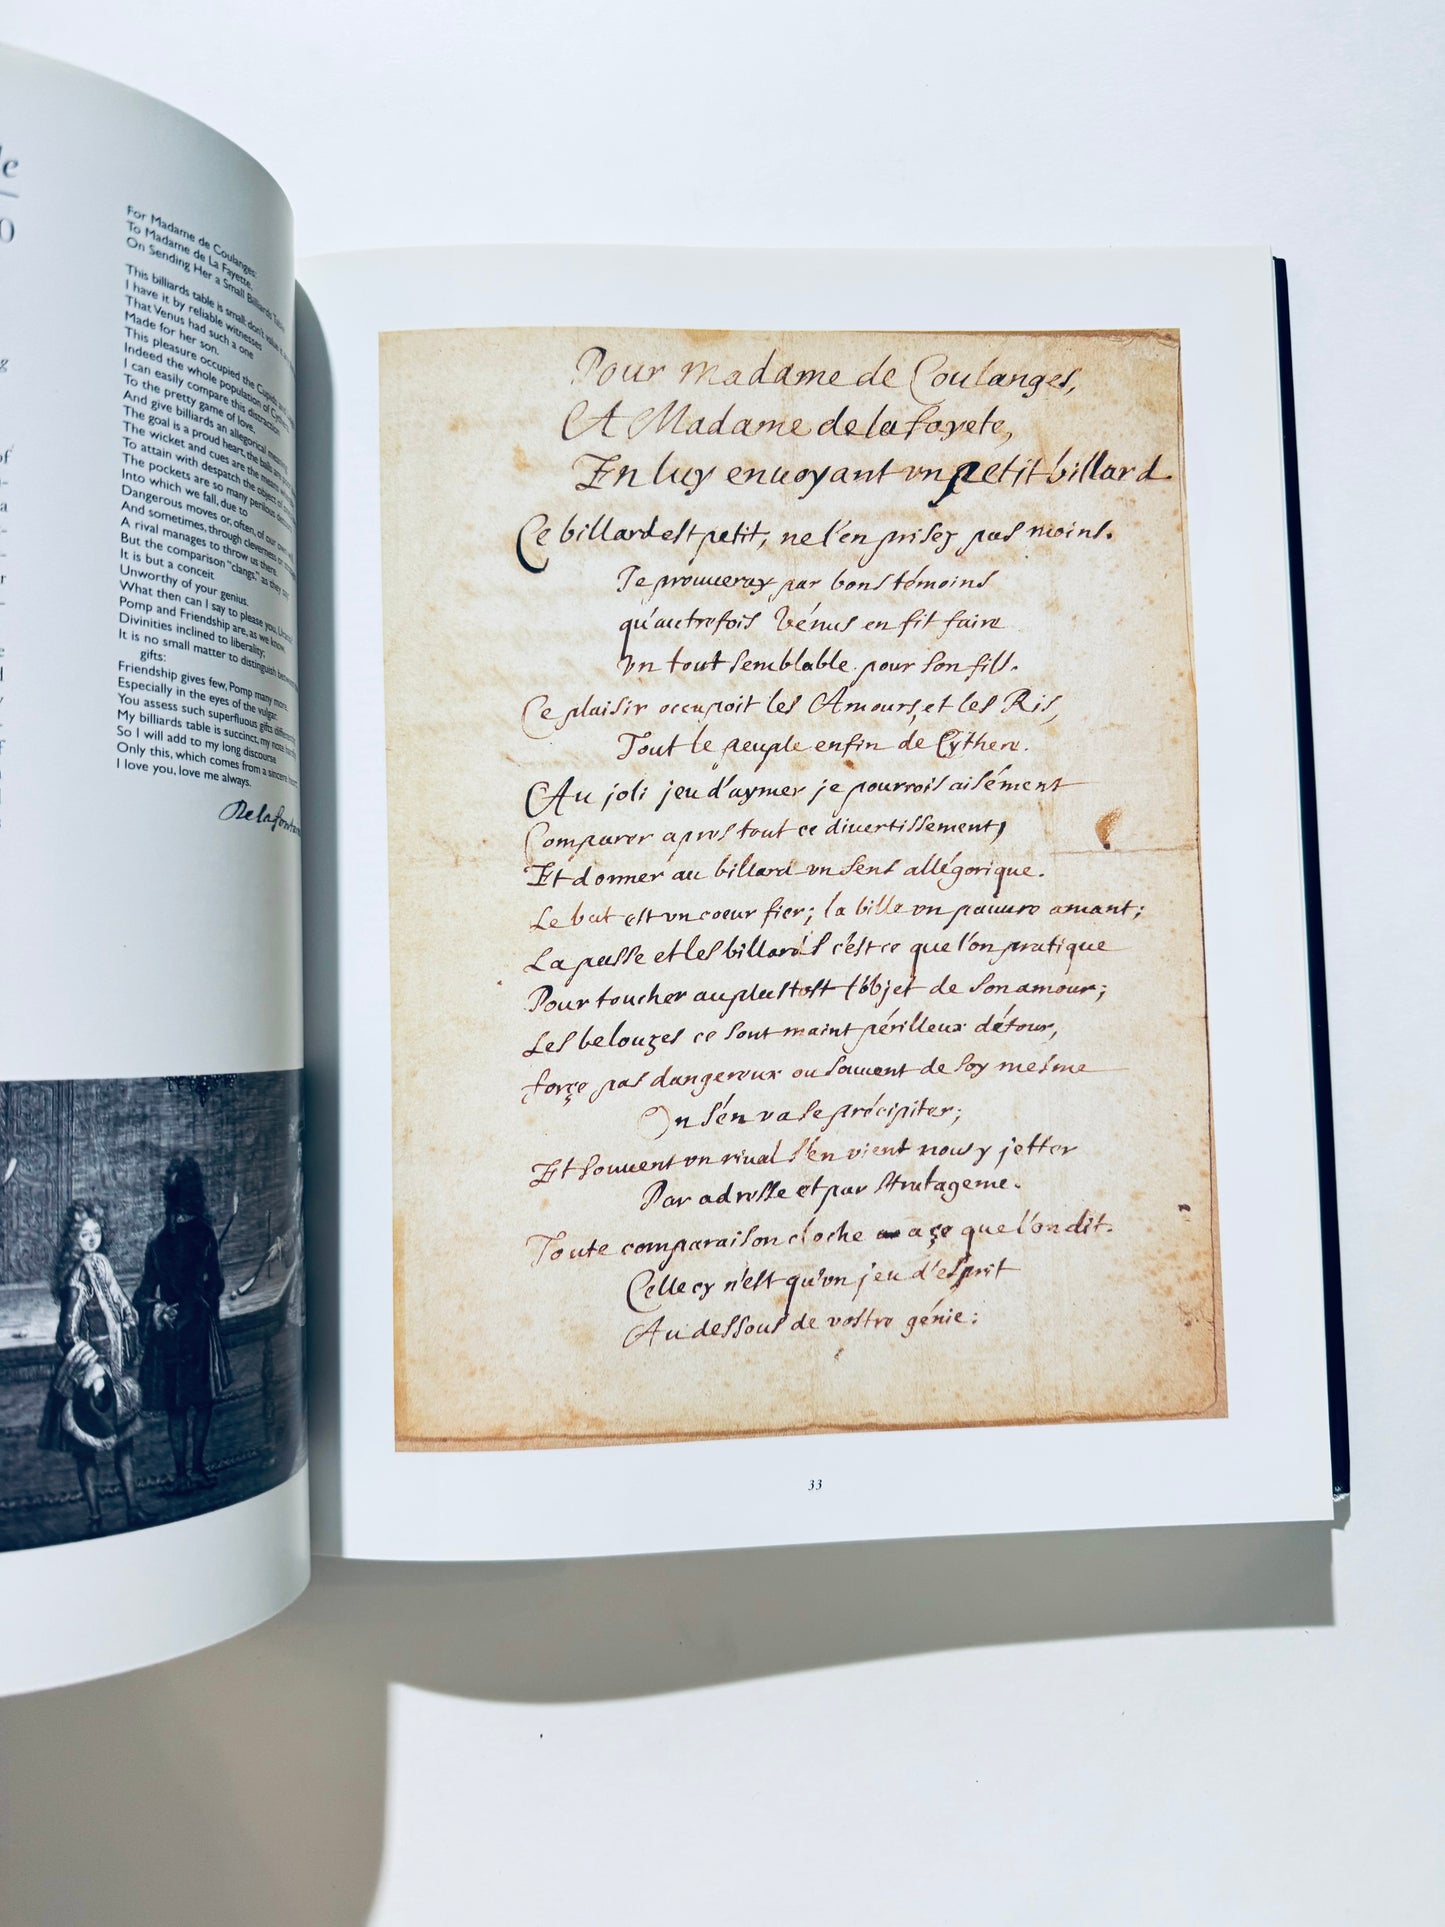 le
0
g
of
a
r
For Madame de Coulanges:
To Madame de La Fayette.
On Sending Her a Small Billiards Table
This billiards table is small: don't value it
I have it by reliable witnesses
That Venus had such a one
Made for her son.
This pleasure occupied the Cupids and
Indeed the whole population of
I can easily compare this distraction
To the pretty game of love,
And give billiards an allegorical meaning
The goal is a proud heart, the balls are
The wicket and cues are the means
To attain with despatch the object of
The pockets are so many perilous
Into which we fall, due to
Dangerous moves or, often, of our own
And sometimes, through cleverness or
A rival manages to throw us there.
But the comparison "clangs," as they say
It is but a conceit
Unworthy of your genius.
What then can I say to please you,
Pomp and Friendship are, as we know,
Divinities inclined to liberality;
It is no small matter to distinguish between
gifts:
Friendship gives few, Pomp many more,
Especially in the eyes of the vulgar.
You assess such superfluous gifts differently
My billiards table is succinct, my note hardly
So I will add to my long discourse
Only this, which comes from a sincere heart
I love you, love me always.
Delafontai
Pour Madame de Coulanges,
A Madame de la fayete,
En luy enuoyant vn petit billard
Ce billard est petit, ne l'en prisez pas moins.
Je prouueray par bons témoins
qu'autrefois Vénus en fit faire
vn tout semblable pour son fils.
Ce plaisir occupoit les Amours, et les Ris,
Tout le peuple enfin de Cythere.
Au joli jeu d'aymer je pourrois aisément
Comparer apres tout ce divertissement,
Et donner au billard vn sens allégorique.
Le but est vn coeur fier; la bille vn pauure amant;
La passe et les billards c'est ce que l'on pratique
Pour toucher au plustost l'objet de son amour;
Les belouzes ce sont maint périlleux détour,
force pas dangereux ou souuent de soy mesme
On s'en va se précipiter;
Et souuent vn riual s'en vient nous y jetter
Par adresse et par stratageme.
Toute comparaison cloche a çe que l'on dit.
Celle cy n'est qu'vn jeu d'esprit
Au dessous de vostre génie:
33